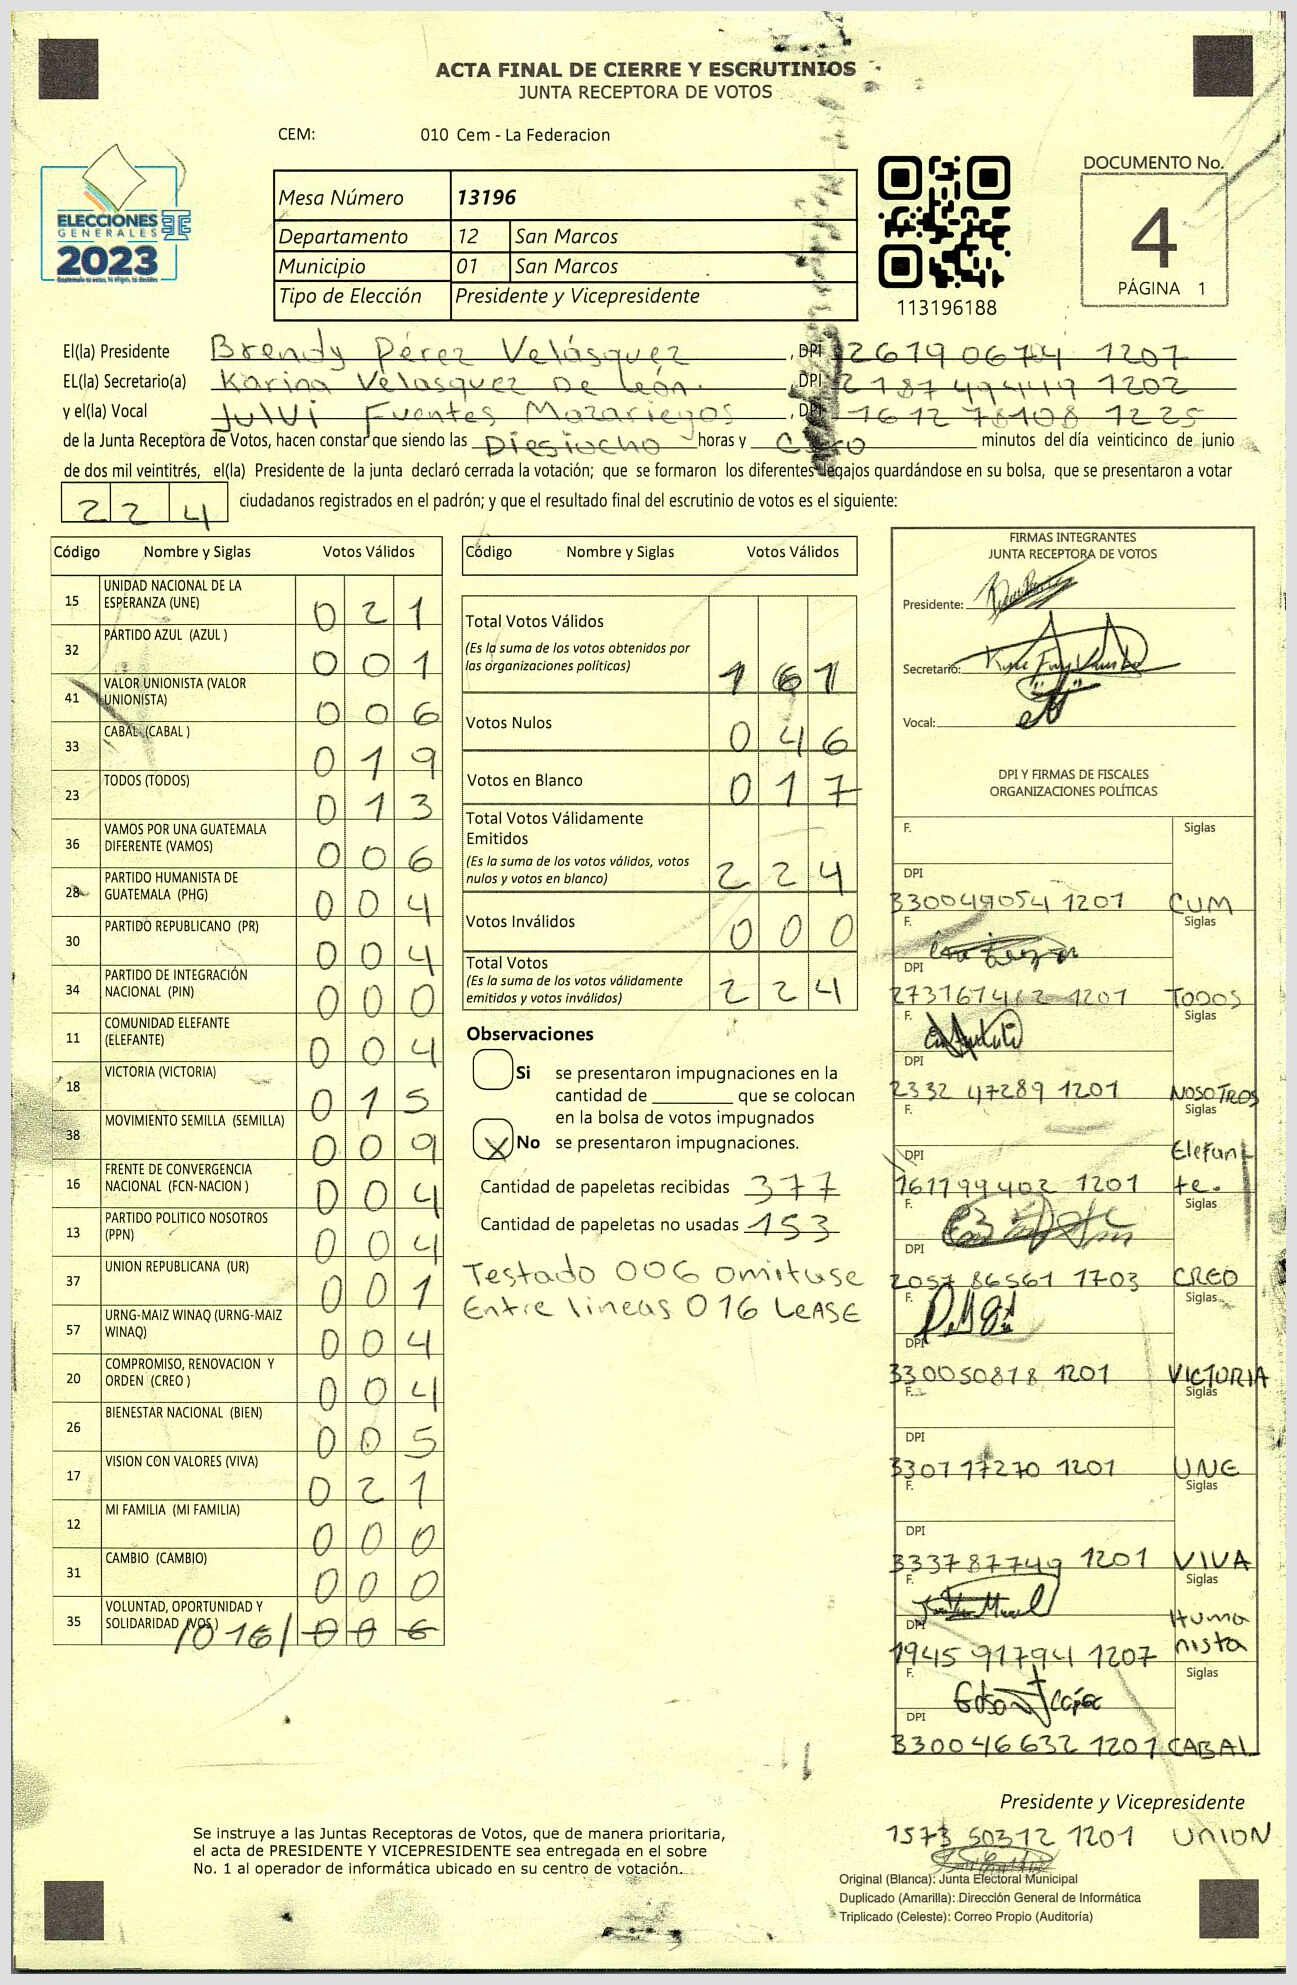 ACTA FINAL DE CIERRE Y ESCRUTINIOS
JUNTA RECEPTORA DE VOTOS
CEM: 010 Cem - La Federacion
ELECCIONES
GENERALES
2023
Mesa Número 13196
Departamento 12 San Marcos
Municipio 01 San Marcos
Tipo de Elección Presidente y Vicepresidente
113196188
DOCUMENTO No.
4
PÁGINA 1
El(la) Presidente Brendy Pérez Velásquez, DPI 2619 0674 1207
EL(la) Secretario(a) Karina Velasquez De León., DPI 2187 49449 1202
y el(la) Vocal Julvi Fuentes Mazariegos, DPI 1612 78108 1225
de la Junta Receptora de Votos, hacen constar que siendo las Diesiocho horas y Cero minutos del día veinticinco de junio
de dos mil veintitrés, el(la) Presidente de la junta declaró cerrada la votación; que se formaron los diferentes legajos quardándose en su bolsa, que se presentaron a votar
224 ciudadanos registrados en el padrón; y que el resultado final del escrutinio de votos es el siguiente:
Código Nombre y Siglas Votos Válidos
15 UNIDAD NACIONAL DE LA ESPERANZA (UNE) 021
32 PARTIDO AZUL (AZUL ) 001
41 VALOR UNIONISTA (VALOR UNIONISTA) 006
33 CABAL (CABAL ) 019
23 TODOS (TODOS) 013
36 VAMOS POR UNA GUATEMALA DIFERENTE (VAMOS) 006
28 PARTIDO HUMANISTA DE GUATEMALA (PHG) 004
30 PARTIDO REPUBLICANO (PR) 004
34 PARTIDO DE INTEGRACIÓN NACIONAL (PIN) 000
11 COMUNIDAD ELEFANTE (ELEFANTE) 004
18 VICTORIA (VICTORIA) 015
38 MOVIMIENTO SEMILLA (SEMILLA) 009
16 FRENTE DE CONVERGENCIA NACIONAL (FCN-NACION ) 004
13 PARTIDO POLITICO NOSOTROS (PPN) 004
37 UNION REPUBLICANA (UR) 001
57 URNG-MAIZ WINAQ (URNG-MAIZ WINAQ) 004
20 COMPROMISO, RENOVACION Y ORDEN (CREO ) 004
26 BIENESTAR NACIONAL (BIEN) 005
17 VISION CON VALORES (VIVA) 021
12 MI FAMILIA (MI FAMILIA) 000
31 CAMBIO (CAMBIO) 000
35 VOLUNTAD, OPORTUNIDAD Y SOLIDARIDAD (VOS) /016/ 006
Código Nombre y Siglas Votos Válidos
Total Votos Válidos
(Es la suma de los votos obtenidos por
las organizaciones políticas) 161
Votos Nulos 046
Votos en Blanco 017
Total Votos Válidamente
Emitidos
(Es la suma de los votos válidos, votos
nulos y votos en blanco) 224
Votos Inválidos 000
Total Votos
(Es la suma de los votos válidamente
emitidos y votos inválidos) 224
Observaciones
Si se presentaron impugnaciones en la
cantidad de ________ que se colocan
en la bolsa de votos impugnados
X No se presentaron impugnaciones.
Cantidad de papeletas recibidas 377
Cantidad de papeletas no usadas 153
Testado 006 omitase
Entre lineas 016 LEASE
FIRMAS INTEGRANTES
JUNTA RECEPTORA DE VOTOS
Presidente:
Secretario:
Vocal:
DPI Y FIRMAS DE FISCALES
ORGANIZACIONES POLÍTICAS
F. Siglas
DPI
330049054 1201 CUM
F. Siglas
DPI
1201 TODOS
F. Siglas
DPI
2332 47289 1201 NOSOTROS
F. Siglas
DPI Elefan
161199402 1201 te.
F. Siglas
DPI
2057 86561 1703 CREO
F. Siglas
DPI
330050878 1201 VICTORIA
F. Siglas
DPI
330117270 1201 UNE
F. Siglas
DPI
333787749 1201 VIVA
F. Siglas
DPI Huma
1945 91794 1207 nista
F. Siglas
DPI
330046632 1201 CABAL
Presidente y Vicepresidente
1573 50312 1201 UNION
Se instruye a las Juntas Receptoras de Votos, que de manera prioritaria,
el acta de PRESIDENTE Y VICEPRESIDENTE sea entregada en el sobre
No. 1 al operador de informática ubicado en su centro de votación.
Original (Blanca): Junta Electoral Municipal
Duplicado (Amarilla): Dirección General de Informática
Triplicado (Celeste): Correo Propio (Auditoría)